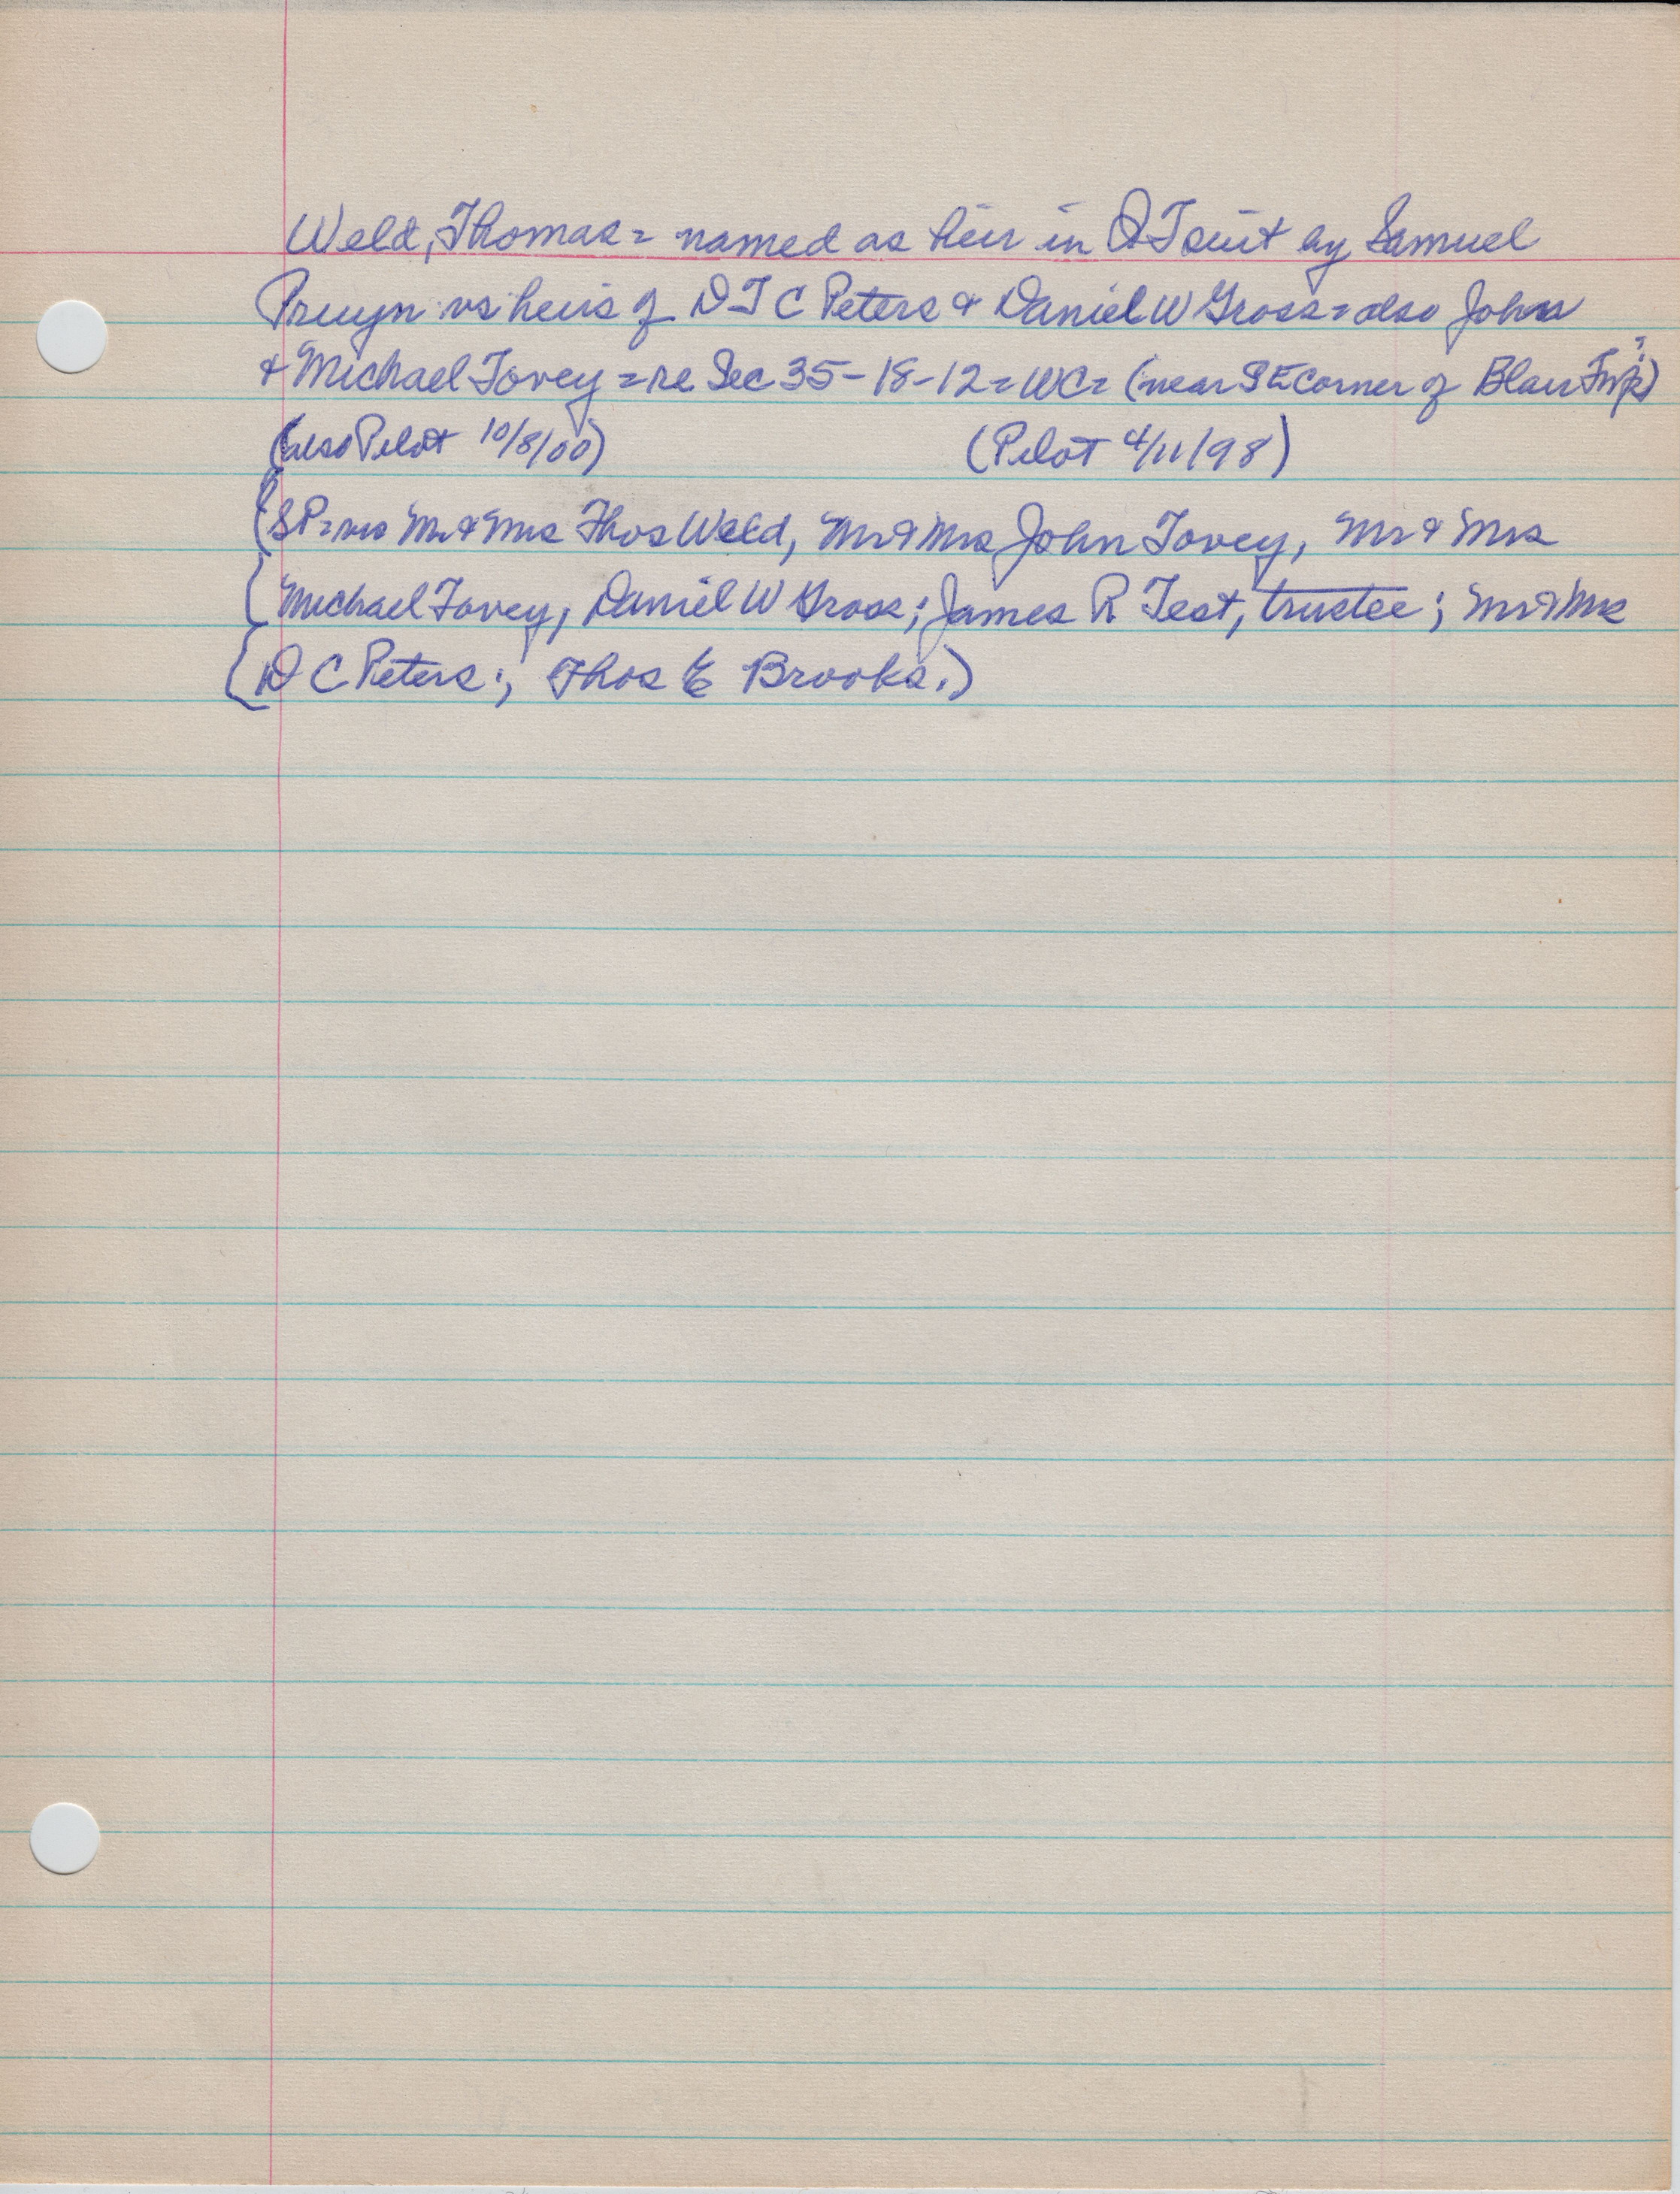 Weld, Thomas = named as heir in QT suit by Samuel
Pruyn vs heirs of D T C Peters & Daniel W Gross = also John
& Michael Tovey = re Sec 35-18-12 = WC = (near SE corner of Blair Twp?)
(also Pilot 10/8/00) (Pilot 4/11/98)
(SP = vs Mr & Mrs Thos Weld, Mr & Mrs John Tovey, Mr & Mrs
Michael Tovey, Daniel W Gross; James R Test, trustee; Mr & Mrs
D C Peters; Thos E Brooks.)